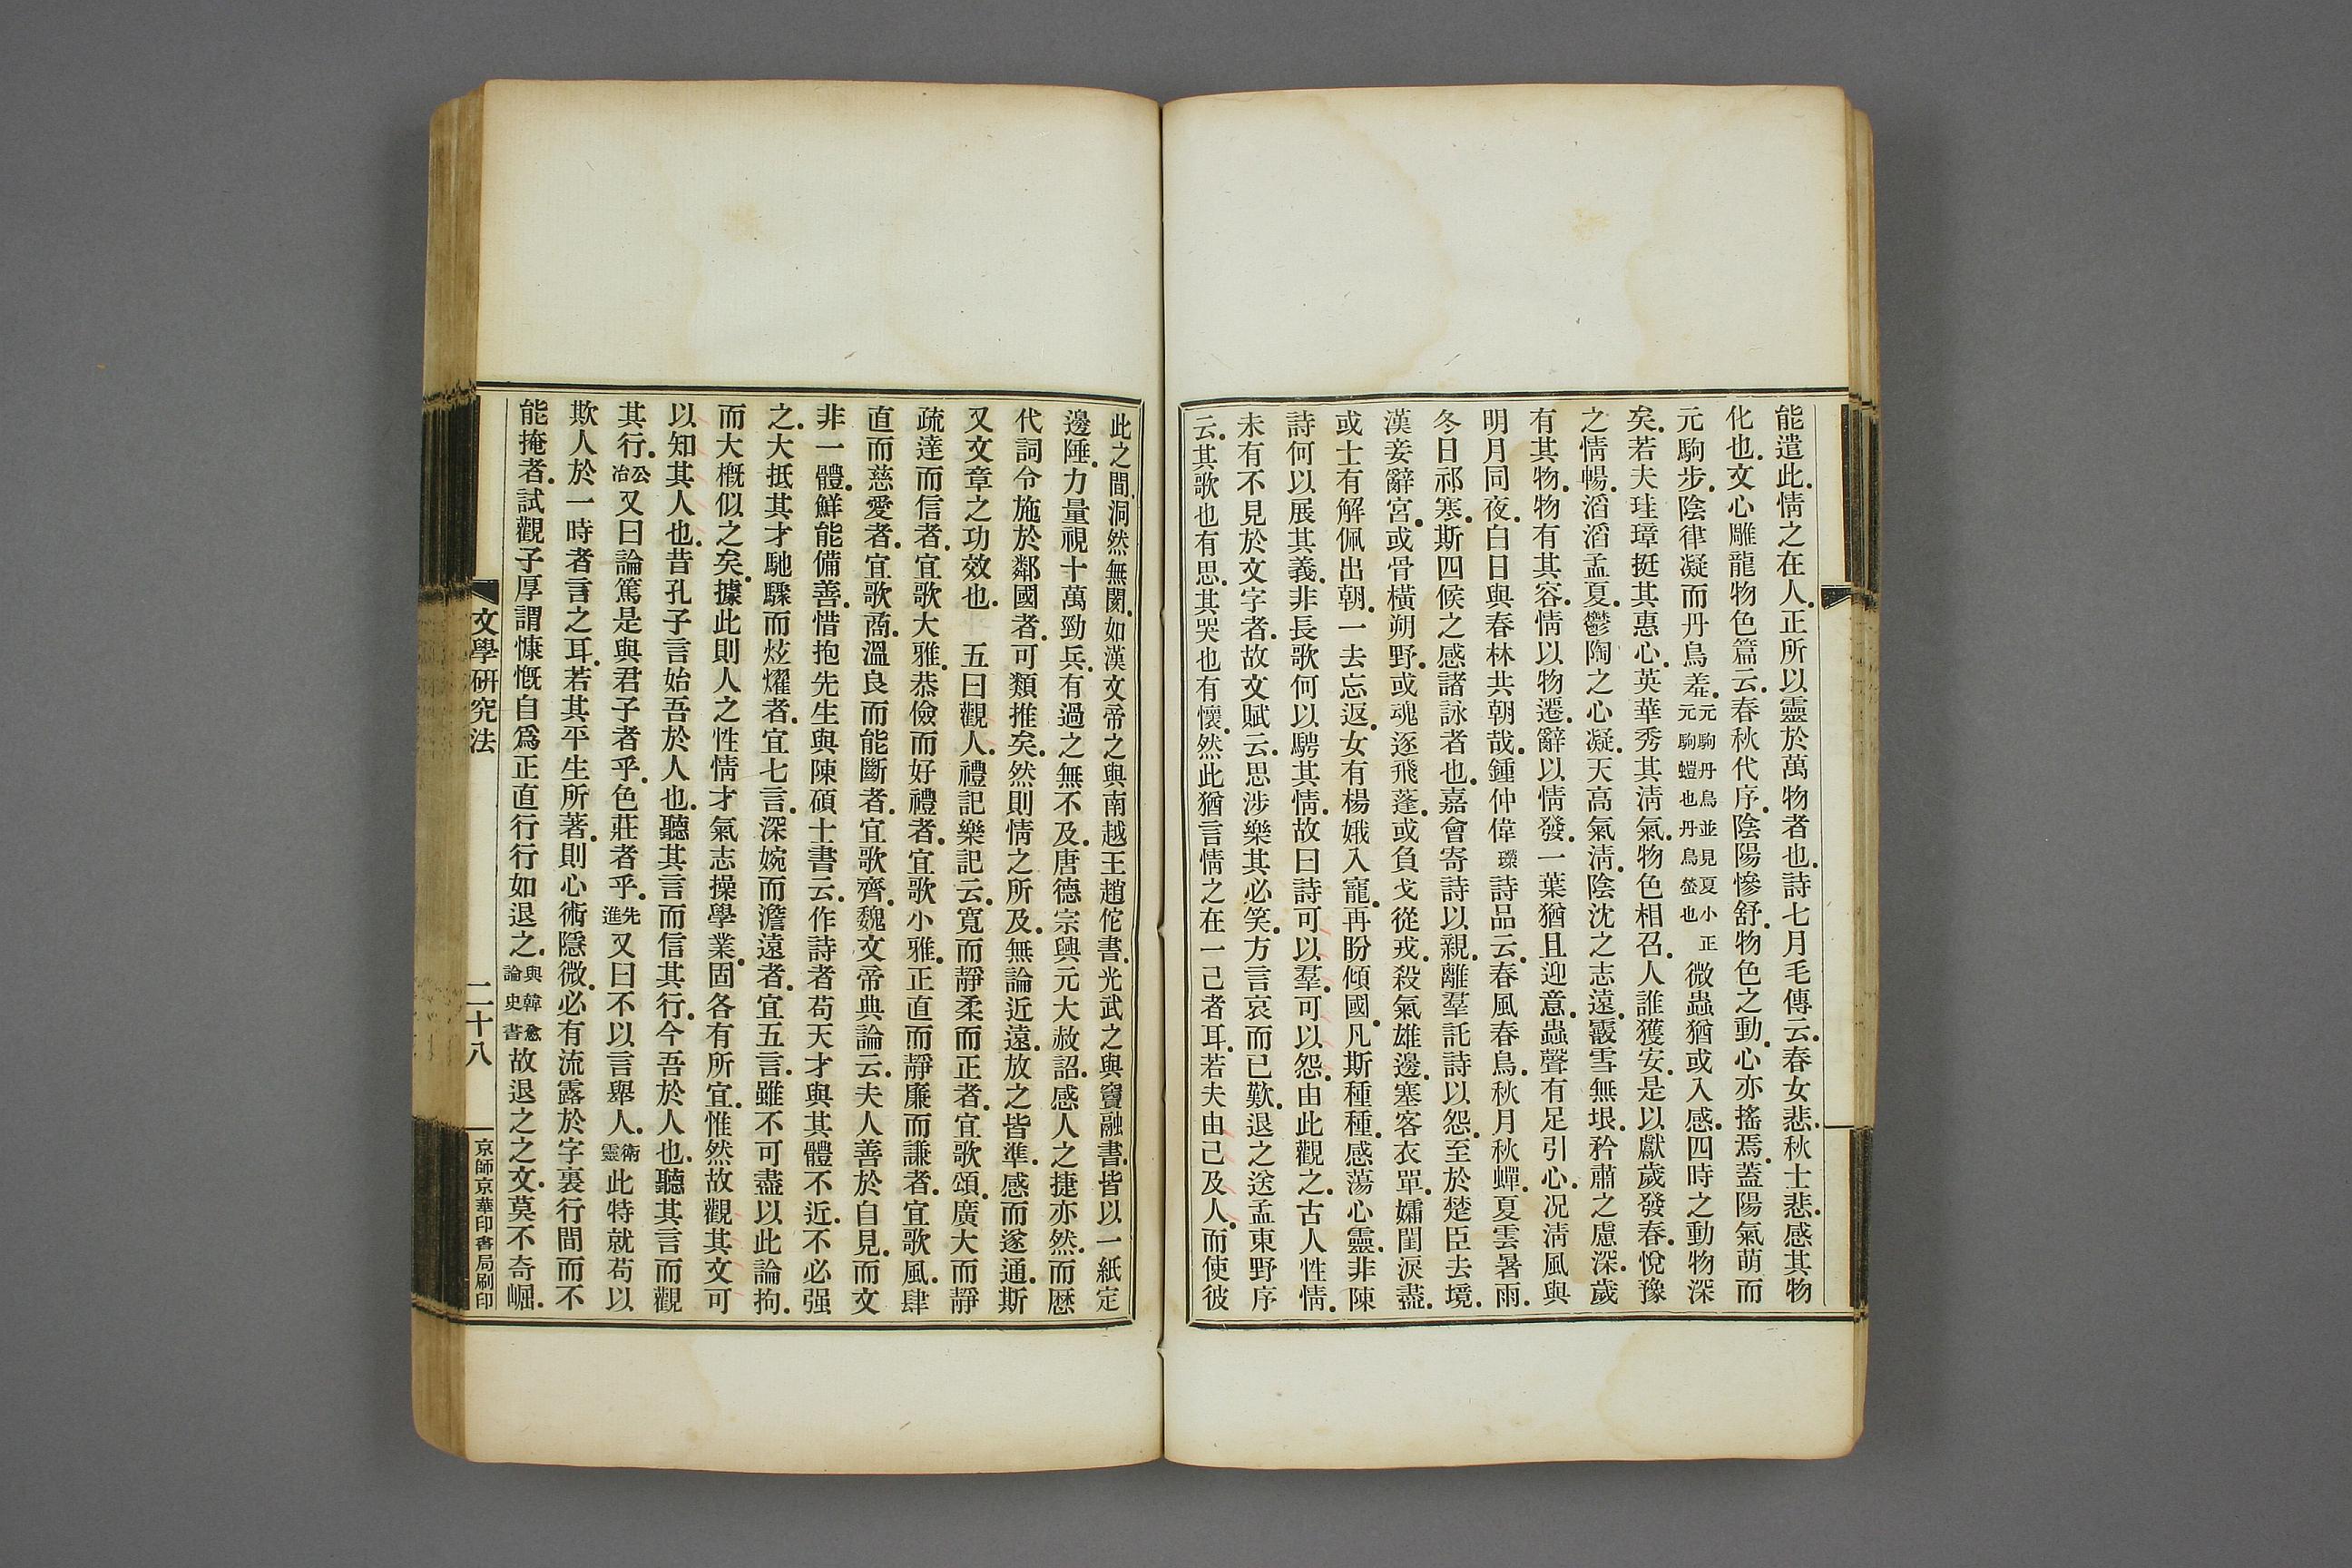 能遣此.情之在人.正所以靈於萬物者也.詩七月毛傳云.春女悲.秋士悲.感其物
化也.文心雕龍物色篇云.春秋代序.陰陽慘舒.物色之動.心亦搖焉.蓋陽氣萌而
元駒步.陰律凝而丹鳥羞.元駒丹鳥並見夏小正元駒螘也丹鳥螢也微蟲猶或入感.四時之動物深
矣.若夫珪璋挺其惠心.英華秀其淸氣.物色相召.人誰獲安.是以獻歲發春.悅豫
之情暢.滔滔孟夏.鬱陶之心凝.天高氣淸.陰沈之志遠.霰雪無垠.矜肅之慮深.歲
有其物.物有其容.情以物遷.辭以情發.一葉猶且迎意.蟲聲有足引心.况淸風與
明月同夜.白日與春林共朝哉.鍾仲偉嶸詩品云.春風春鳥.秋月秋蟬.夏雲暑雨.
冬日祁寒.斯四候之感諸詠者也.嘉會寄詩以親.離羣託詩以怨.至於楚臣去境.
漢妾辭宮.或骨橫朔野.或魂逐飛蓬.或負戈從戎.殺氣雄邊.塞客衣單.孀閨淚盡.
或士有解佩出朝.一去忘返.女有楊娥入寵.再盼傾國.凡斯種種.感蕩心靈.非陳
詩何以展其義.非長歌何以騁其情.故曰詩可以羣.可以怨.由此觀之.古人性情.
未有不見於文字者.故文賦云.思涉樂其必笑.方言哀而已歎.退之送孟東野序
云.其歌也有思.其哭也有懷.然此猶言情之在一己者耳.若夫由己及人.而使彼
此之間.洞然無閡.如漢文帝之與南越王趙佗書.光武之與竇融書.皆以一紙定
邊陲.力量視十萬勁兵.有過之無不及.唐德宗興元大赦詔.感人之捷亦然.而歷
代詞令施於鄰國者.可類推矣.然則情之所及.無論近遠.放之皆準.感而遂通.斯
又文章之功效也　五曰觀人.禮記樂記云.寬而靜柔而正者.宜歌頌.廣大而靜
疏達而信者.宜歌大雅.恭儉而好禮者.宜歌小雅.正直而靜廉而謙者.宜歌風.肆
直而慈愛者.宜歌商.溫良而能斷者.宜歌齊.魏文帝典論云.夫人善於自見.而文
非一體.鮮能備善.惜抱先生與陳碩士書云.作詩者苟天才與其體不近.不必强
之.大抵其才馳驟而炫燿者.宜七言.深婉而澹遠者.宜五言.雖不可盡以此論拘.
而大槪似之矣.據此則人之性情才氣志操學業.固各有所宜.惟然故觀其文可
以知其人也.昔孔子言始吾於人也.聽其言而信其行.今吾於人也.聽其言而觀
其行.公冶又曰論篤是與君子者乎.色莊者乎.先進又曰不以言舉人.衛靈此特就苟以
欺人於一時者言之耳.若其平生所著.則心術隱微.必有流露於字裏行間而不
能掩者.試觀子厚謂慷慨自爲正直行行如退之.與韓愈論史書故退之之文.莫不奇崛.
文學硏究法
二十八
京師京華印書局刷印